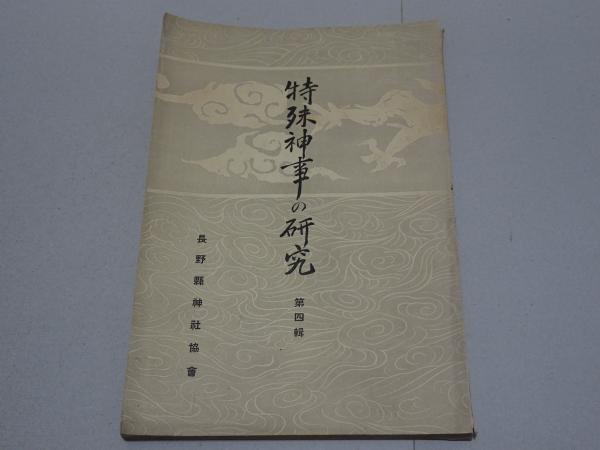 特殊神事の研究
第四輯
長野縣神社協會